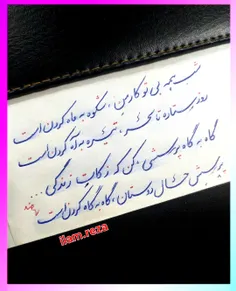 شب همه بی تو کار من ، شکوه به ماه کردن است
روز ستاره تا سحر ، تیره به آه کردن است
گاه به گاه پرسشی بکن که زکات زندگی ...
پرسش حال دوستان ، گاه به گاه کردن است
ilam.reza